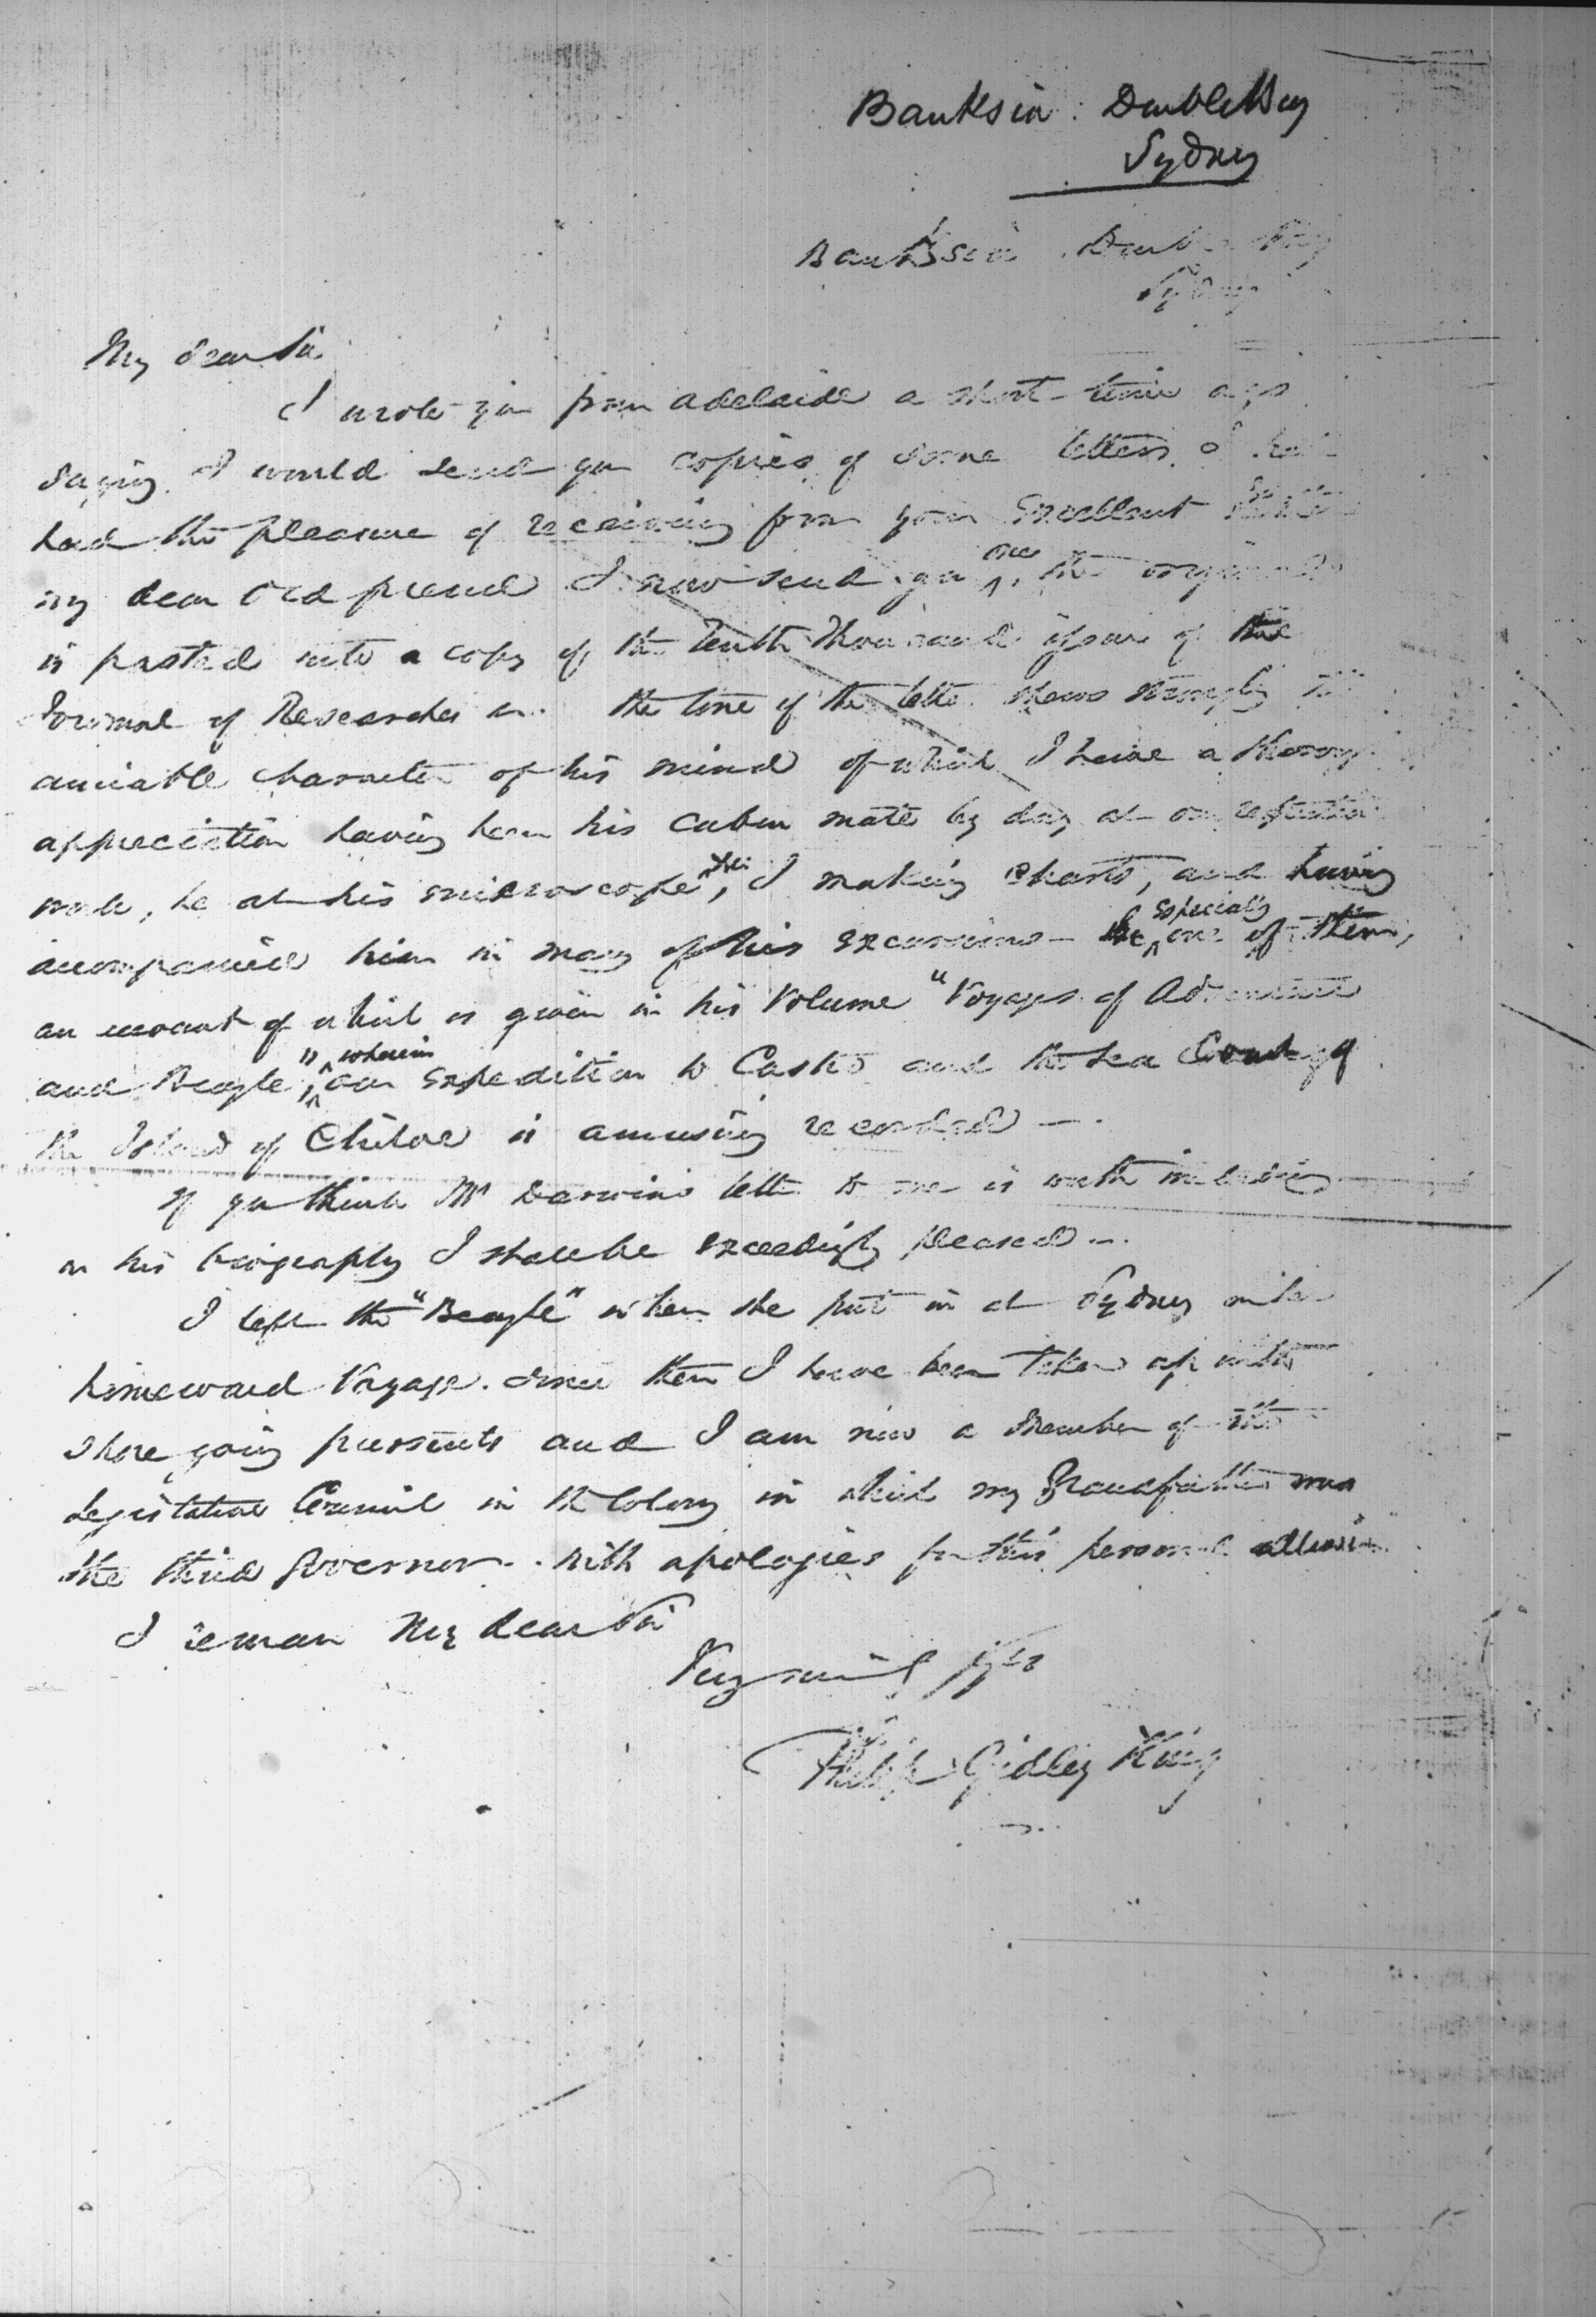 Banksia. Double Bay
Sydney
Banksia Double Bay
Sydney
My dear Sir
I wrote you from Adelaide a short time ago
saying I would send you copies of some letters I
had the pleasure of receiving from your Excellent
my dear old friend I now send you one, the original
is pasted into a copy of the Tenth Thousand issue of the
Journal of Researches the tone of the letter shews strongly the
amiable character of his mind of which I have a thorough
appreciation having been his cabin mate by day at our respective
work, he at his microscope, I making charts, and having
accompanied him in many of his excursions - especially one of them,
an account of which is given in his Volume "Voyages of Adventure
and Beagle", wherein our expedition to Castro and the Sea Coast of
the Island of Chiloe is amusing recorded —
If you think Mr Darwins letter to me is worth including
in his biography I shall be exceedingly pleased —
I left the "Beagle" when she put in at Sydney on her
homeward Voyage. Since then I have been taken up with
shore going pursuits and I am now a Member of the
Legislative Council in the Colony in which my Grandfather was
the third Governor. With apologies for this personal allusion
I remain My dear Sir
Very
Philip Gidley King